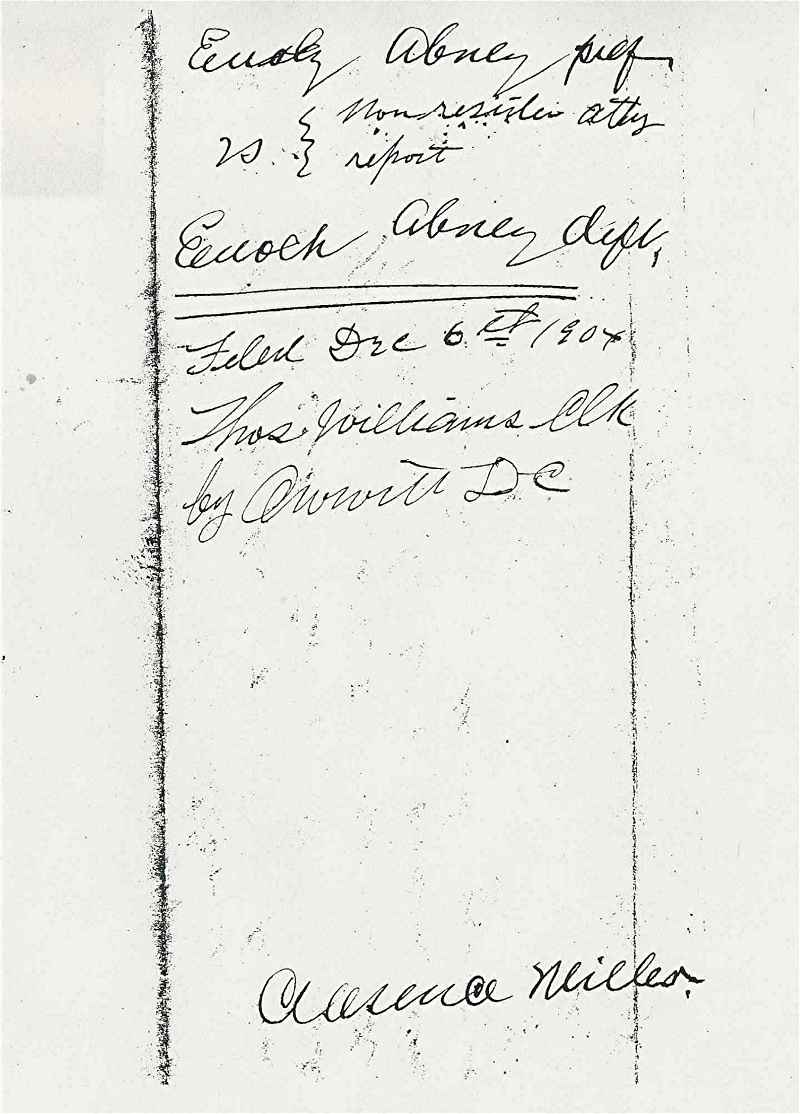 Emoly Abney plef,
Nonresiden atty
vs. report
Enoch Abney deft,
Filed Dec 6 1904
Thos. Williams Clk
by DC
Clarence Miller.